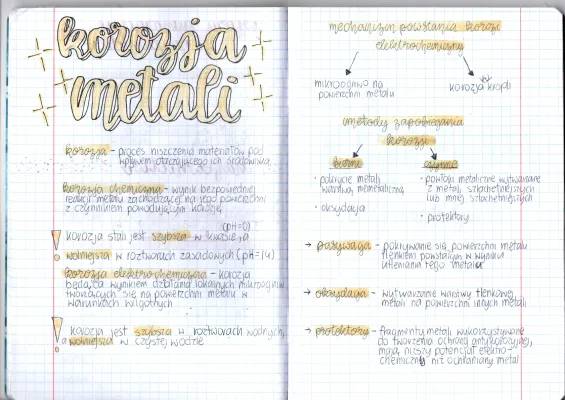 korozja
metali
korozja - proces niszczenia materiałów pod
wpływem otaczającego ich środowiska
korozja chemiczna - wynik bezpośredniej
reakcji metalu zachodzącej na jego powierzchni
z czynnikiem powodującym korozję
(pH=0)
! korozja stali jest szybsza w kwasie, a
wolniejsza w roztworach zasadowych (pH=14)
korozja elektrochemiczna - korozja
będąca wynikiem działania lokalnych mikroogniw
tworzących się na powierzchni metalu w
warunkach wilgotnych
! korozja jest szybsza w roztworach wodnych,
a wolniejsza w czystej wodzie
mechanizm powstania korozji
elektrochemicznej
mikroogniwo na
powierzchni metalu
korozja kropli
metody zapobiegania
korozji
bierne
czynne
• pokrycie metali
warstwą niemetaliczną
• oksydacja
• powłoki metaliczne wytwarzane
z metali szlachetniejszych
lub mniej szlachetniejszych
• protektory
→ pasywacja - pokrywanie się powierzchni metalu
tlenkiem powstałym w wyniku
utleniania tego metalu
→ oksydacja - wytwarzanie warstwy tlenkowej
metali na powierzchni innych metali
→ protektory - fragmenty metali wykorzystywane
do tworzenia ochrony antykorozyjnej,
mają niższy potencjał elektro-
chemiczny niż ochraniany metal